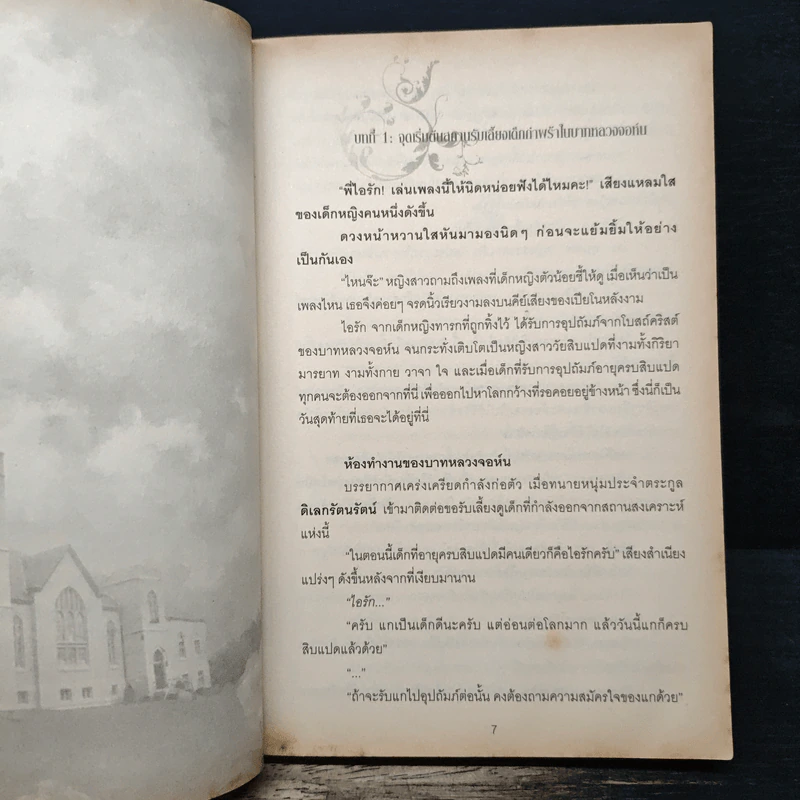 บทที่ 1: จุดเริ่มต้นสถานรับเลี้ยงเด็กกำพร้าในบาทหลวงจอห์น
"พี่ไอรัก! เล่นเพลงนี้ให้นิดหน่อยฟังได้ไหมคะ!" เสียงแหลมใส
ของเด็กหญิงคนหนึ่งดังขึ้น
ดวงหน้าหวานใสหันมามองนิดๆ ก่อนจะแย้มยิ้มให้อย่าง
เป็นกันเอง
"ไหนจ๊ะ" หญิงสาวถามถึงเพลงที่เด็กหญิงตัวน้อยชี้ให้ดู เมื่อเห็นว่าเป็น
เพลงไหน เธอจึงค่อยๆ จรดนิ้วเรียวงามลงบนคีย์เสียงของเปียโนหลังงาม
ไอรัก จากเด็กหญิงทารกที่ถูกทิ้งไว้ ได้รับการอุปถัมภ์จากโบสถ์คริสต์
ของบาทหลวงจอห์น จนกระทั่งเติบโตเป็นหญิงสาววัยสิบแปดที่งามทั้งกิริยา
มารยาท งามทั้งกาย วาจา ใจ และเมื่อเด็กที่รับการอุปถัมภ์อายุครบสิบแปด
ทุกคนจะต้องออกจากที่นี่ เพื่อออกไปหาโลกกว้างที่รอคอยอยู่ข้างหน้า ซึ่งนี่ก็เป็น
วันสุดท้ายที่เธอจะได้อยู่ที่นี่
ห้องทำงานของบาทหลวงจอห์น
บรรยากาศเคร่งเครียดกำลังก่อตัว เมื่อทนายหนุ่มประจำตระกูล
ดิเลกรัตนรัตน์ เข้ามาติดต่อขอรับเลี้ยงดูเด็กที่กำลังออกจากสถานสงเคราะห์
แห่งนี้
"ในตอนนี้เด็กที่อายุครบสิบแปดมีคนเดียวก็คือไอรักครับ" เสียงสำเนียง
แปร่งๆ ดังขึ้นหลังจากที่เงียบมานาน
"ไอรัก..."
"ครับ แกเป็นเด็กดีนะครับ แต่อ่อนต่อโลกมาก แล้ววันนี้แกก็ครบ
สิบแปดแล้วด้วย"
"..."
"ถ้าจะรับแกไปอุปถัมภ์ต่อนั้น คงต้องถามความสมัครใจของแกด้วย"
7